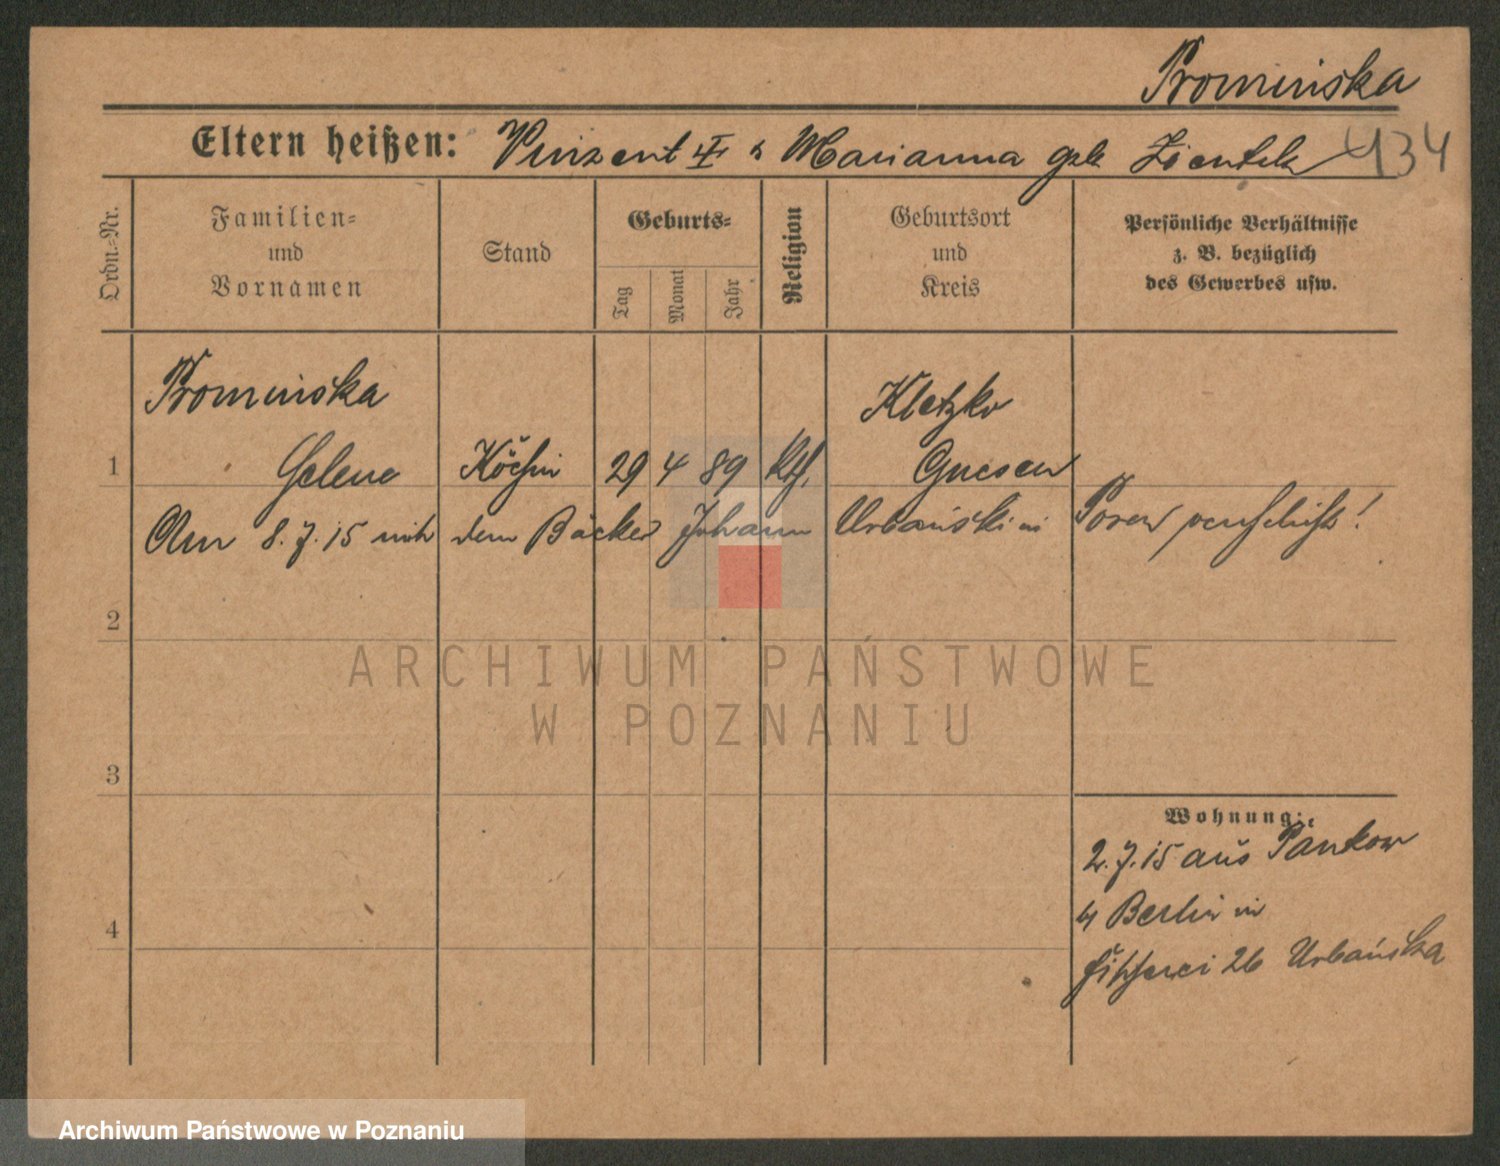 Promińska
Eltern heißen: Vinzent † u Marianna geb Zientek 434
Ordn.=Nr.
Familien=
und
Vornamen
Stand
Geburts=
Tag
Monat
Jahr
Religion
Geburtsort
und
Kreis
Persönliche Verhältnisse
z. B. bezüglich
des Gewerbes usw.
Promińska Kletzko
1 Helene Köchin 29 4 89 kth. Gnesen
Am 8. 7. 15 mit dem Bäcker Johann Urbański in Posen
2
ARCHIWUM PAŃSTWOWE
W POZNANIU
3
Wohnung:
2. 7. 15 aus Pankow
4 Berlin in
Fischerei 26 Urbańska
Archiwum Państwowe w Poznaniu